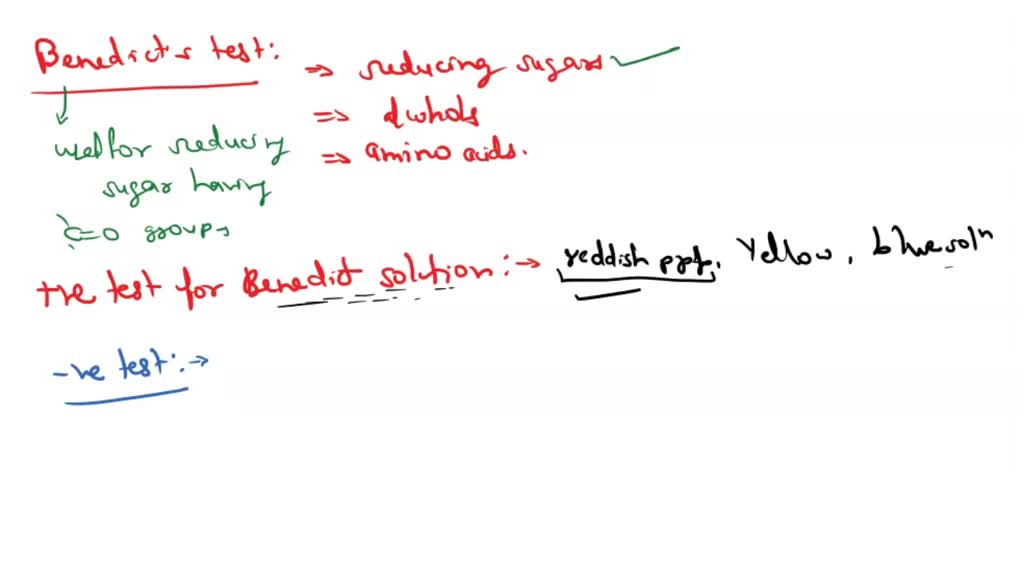 Benedict's test:
⇒ reducing sugars ✓
⇒ alcohols
⇒ amino acids.
used for reducing
sugar having
C=O groups
+ve test for Benedict solution:→ reddish ppt, Yellow, blue solⁿ
-ve test:→